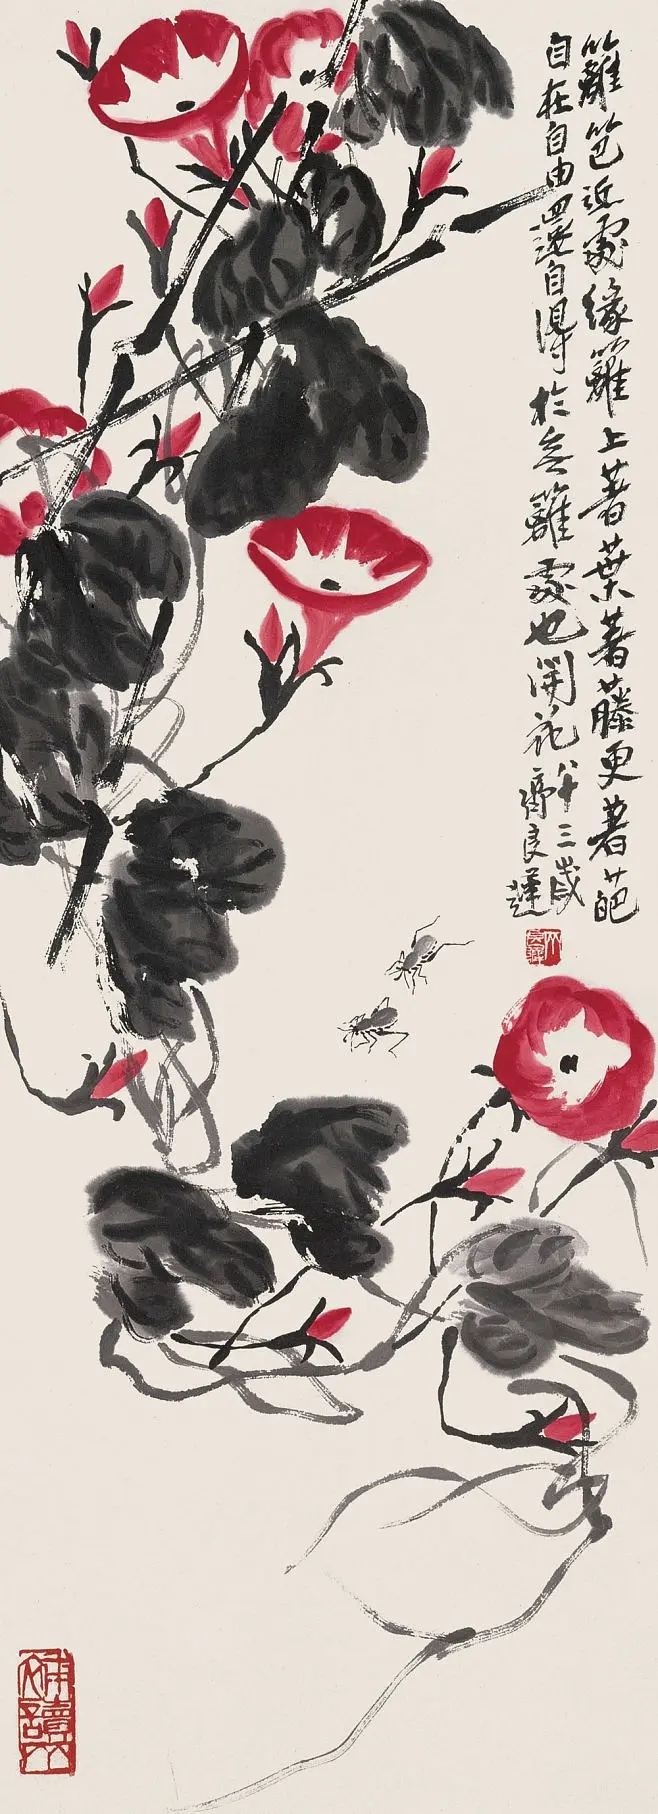 籬笆近處緣籬上著葉著藤更著葩
自在自由還自得於無籬處也開花
八十三歲
齊良遲